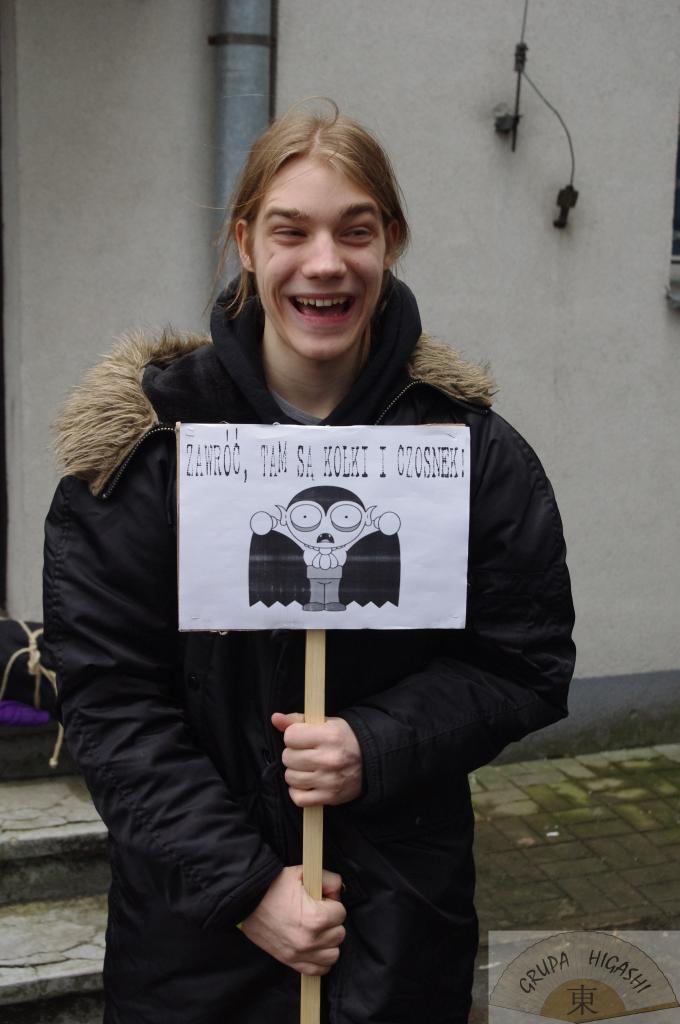 ZAWRÓĆ, TAM SĄ KOŁKI I CZOSNEK!
GRUPA HIGASHI
東